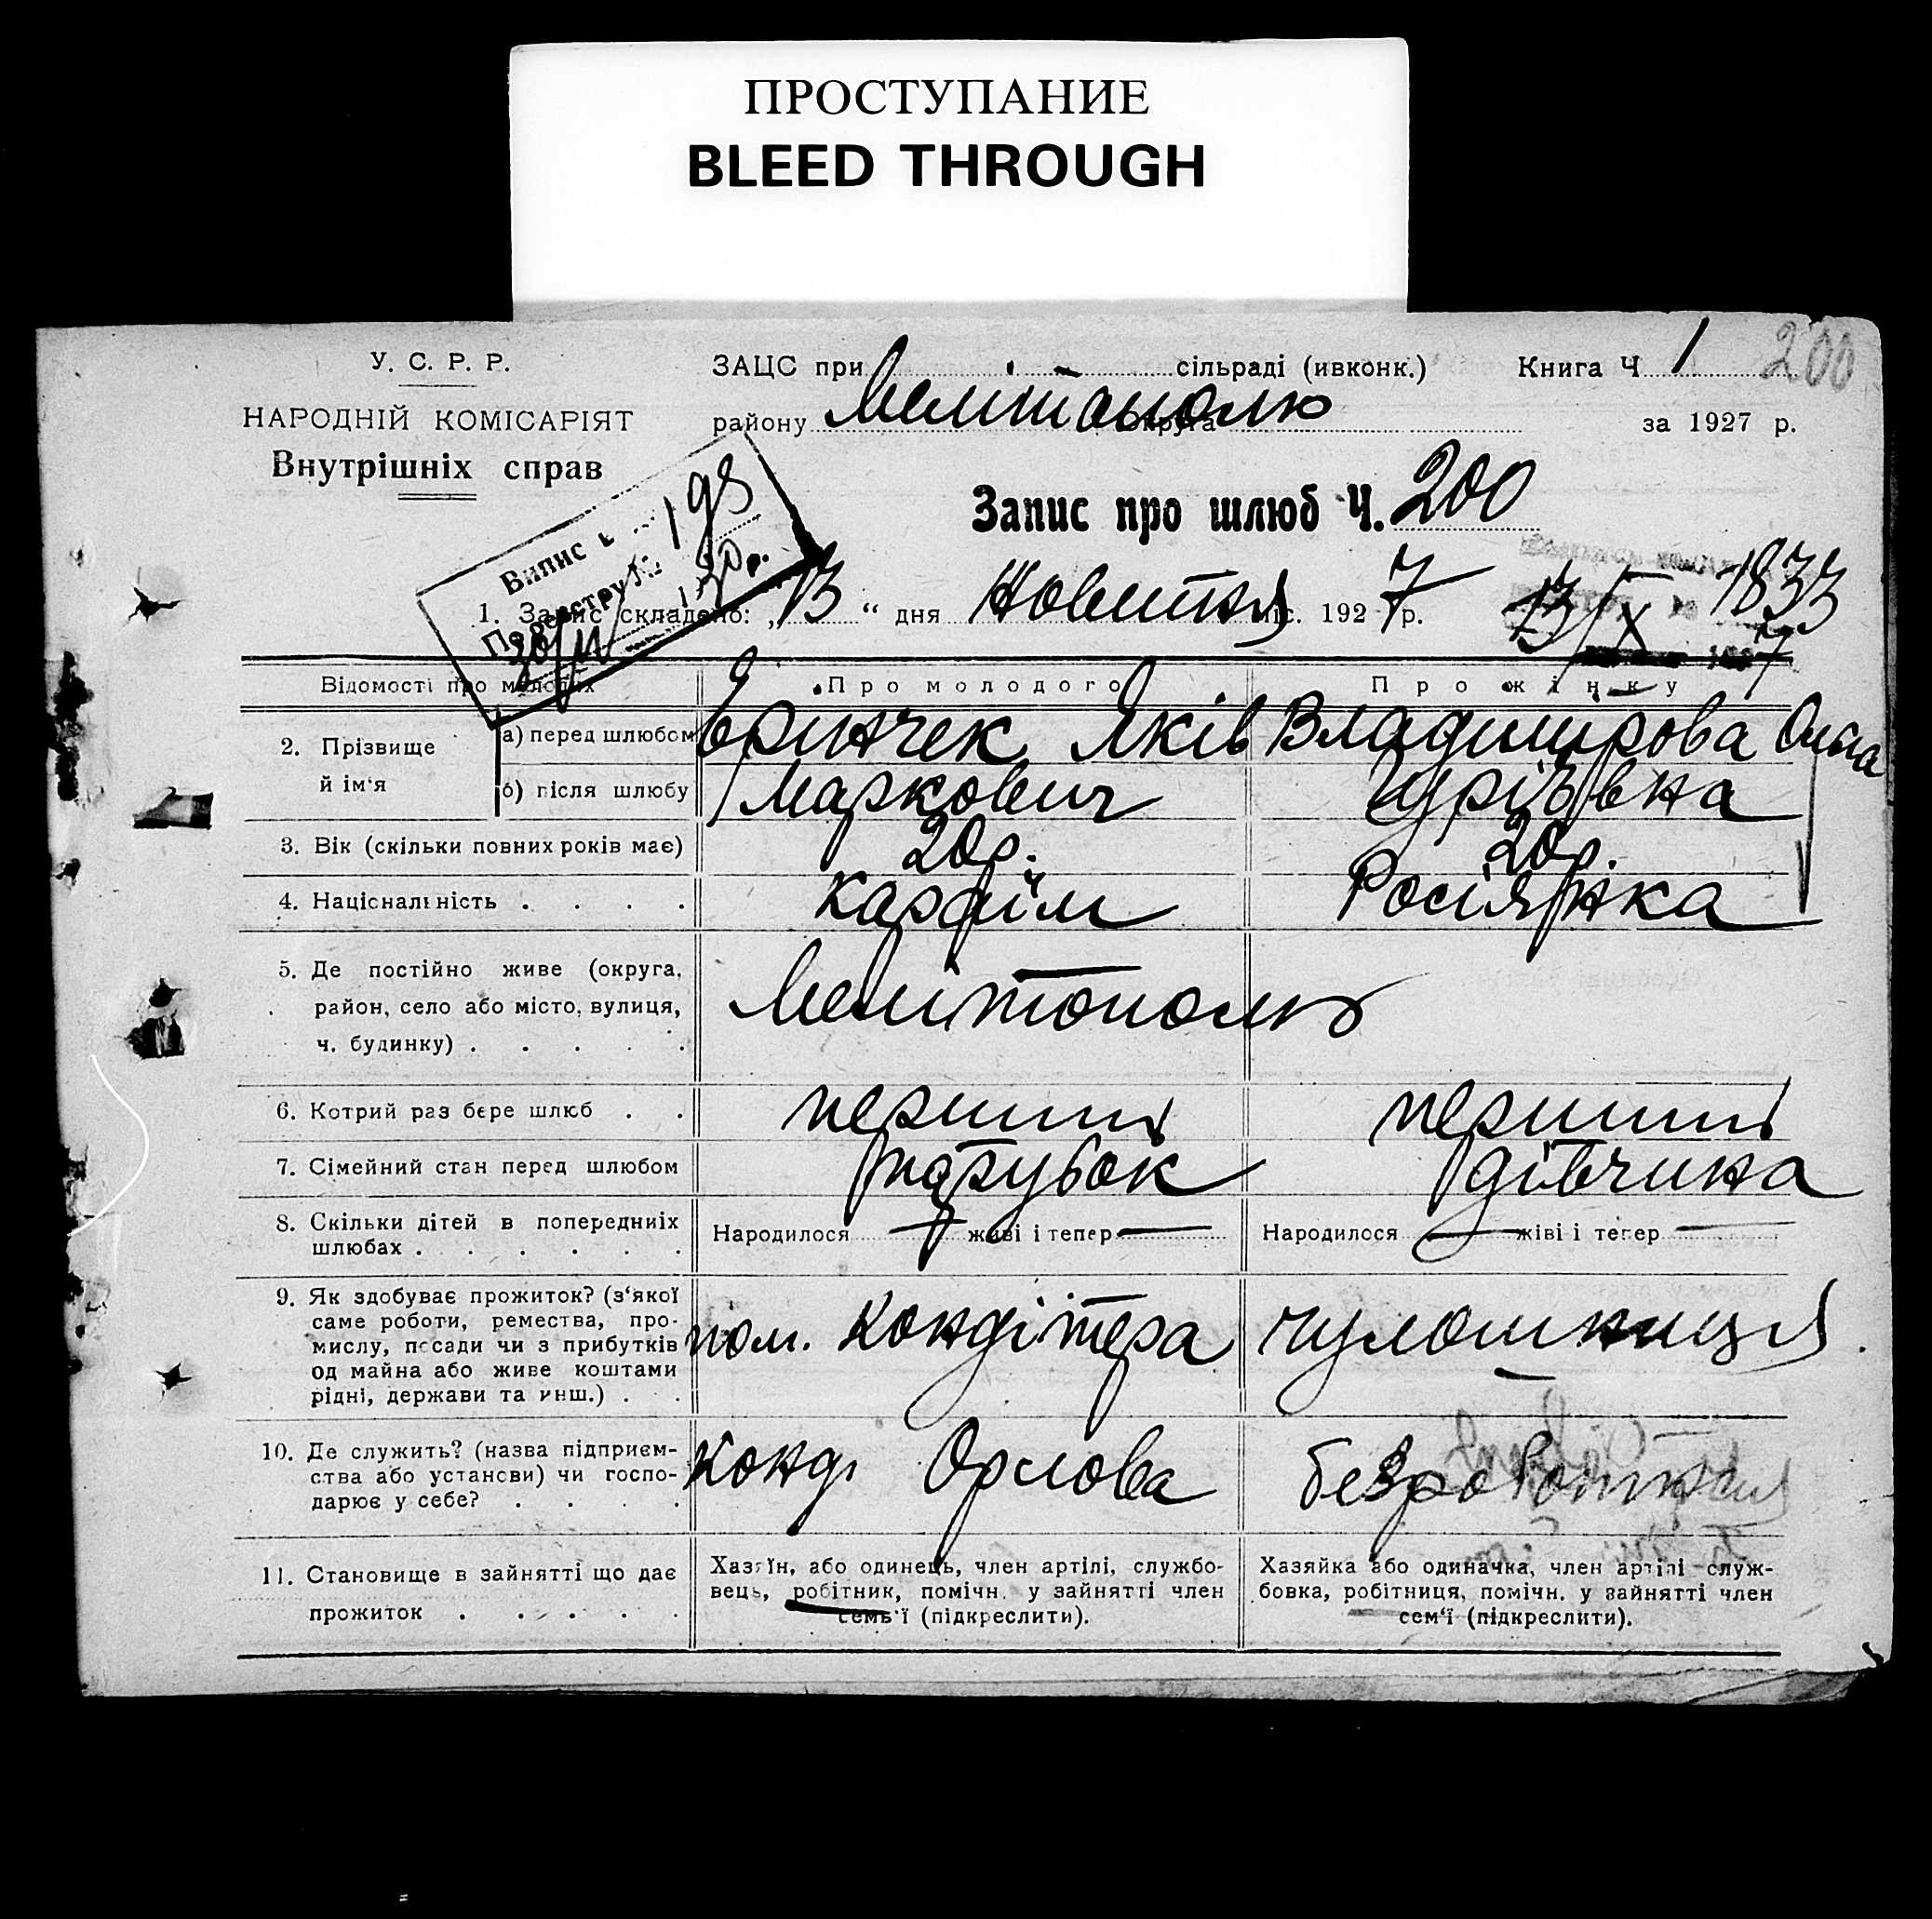 ПРОСТУПАНИЕ
BLEED THROUGH
У. С. Р. Р.
НАРОДНІЙ КОМІСАРІЯТ
Внутрішніх справ
ЗАЦС при сільраді (ивконк.) Книга Ч 1 200
району Мелітополю округа за 1927 р.
Випис в 198
По реєстру №
30 р.
Запис про шлюб Ч. 200
1. Запис складено: „13 “ дня Новитня міс. 1927 р. 13/X 1833
Відомості про молодих Про молодого Про жінку
2. Прізвище й ім‘я
а) перед шлюбом Яків Владимірова
б) після шлюбу Маркович
3. Вік (скільки повних років має) 20 р. 20 р.
4. Національність . . . . Караїм Росіянка
5. Де постійно живе (округа, район, село або місто, вулиця, ч. будинку) . . . . . Мелітополь
6. Котрий раз бере шлюб . . перший перший
7. Сімейний стан перед шлюбом парубок дівчина
8. Скільки дітей в попередниіх шлюбах . . . . . . Народилося — живі і тепер — Народилося — жіві і тепер —
9. Як здобуває прожиток? (з‘якої саме роботи, ремества, промислу, посади чи з прибутків од майна або живе коштами рідні, держави та инш.) . . пом. Кондітера чулошниця
10. Де служить? (назва підприємства або установи) чи господарює у себе? . . . . Конд. Орлова безробітная
11. Становище в зайнятті що дає прожиток . . . . . .
Хазяїн, або одинець, член артілі, службовець, робітник, помічн. у зайнятті член семь‘ї (підкреслити).
Хазяйка або одиначка, член артілі службовка, робітниця, помічн. у зайнятті член сем‘ї (підкреслити).